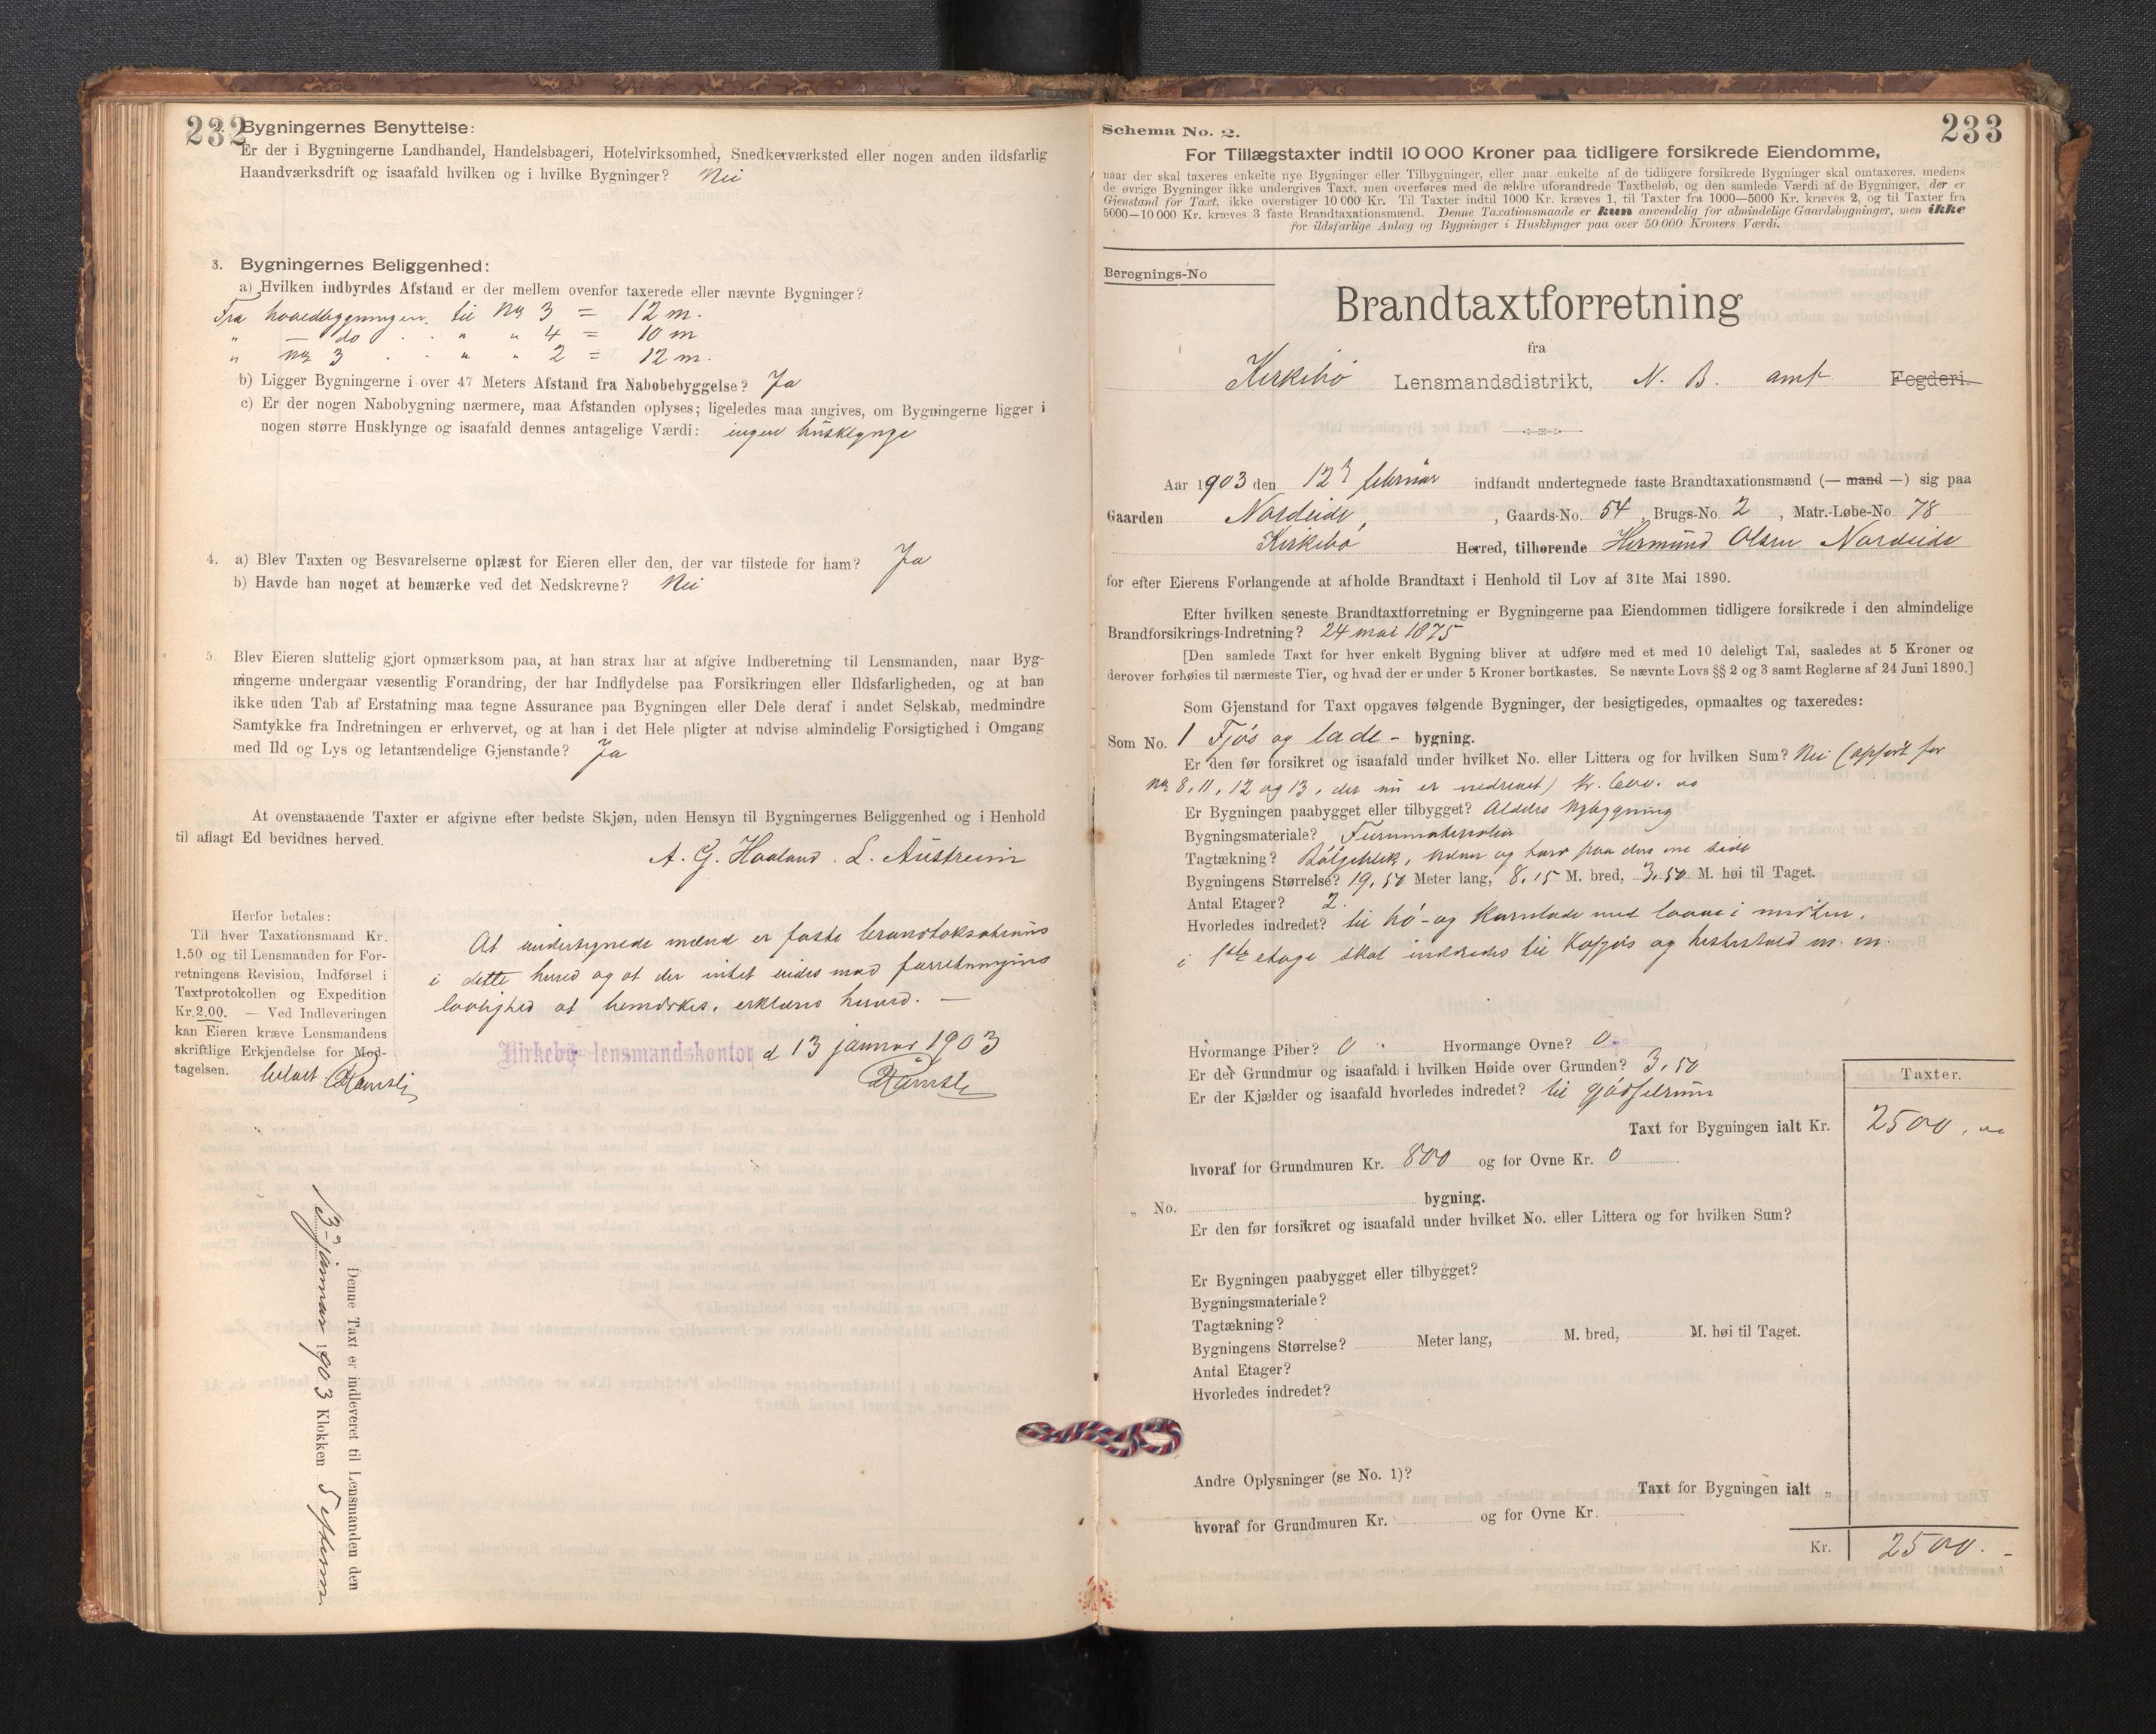 232
2. Bygningernes Benyttelse:
Er der i Bygningerne Landhandel, Handelsbageri, Hotelvirksomhed, Snedkerværksted eller nogen anden ildsfarlig
Haandværksdrift og isaafald hvilken og i hvilke Bygninger? Nei
3. Bygningernes Beliggenhed:
a) Hvilken indbyrdes Afstand er der mellem ovenfor taxerede eller nævnte Bygninger?
Fra hovedbygningen til No 3 = 12 m.
" — do . . " " 4 = 10 m
" No 3 . . " " 2 = 12 m.
b) Ligger Bygningerne i over 47 Meters Afstand fra Nabobebyggelse? Ja
c) Er der nogen Nabobygning nærmere, maa Afstanden oplyses; ligeledes maa angives, om Bygningerne ligger i
nogen større Husklynge og isaafald dennes antagelige Værdi: ingen husklynge
4. a) Blev Taxten og Besvarelserne oplæst for Eieren eller den, der var tilstede for ham? Ja
b) Havde han noget at bemærke ved det Nedskrevne? Nei
5. Blev Eieren sluttelig gjort opmærksom paa, at han strax har at afgive Indberetning til Lensmanden, naar Byg-
ningerne undergaar væsentlig Forandring, der har Indflydelse paa Forsikringen eller Ildsfarligheden, og at han
ikke uden Tab af Erstatning maa tegne Assurance paa Bygningen eller Dele deraf i andet Selskab, medmindre
Samtykke fra Indretningen er erhvervet, og at han i det Hele pligter at udvise almindelig Forsigtighed i Omgang
med Ild og Lys og letantændelige Gjenstande? Ja
At ovenstaaende Taxter er afgivne efter bedste Skjøn, uden Hensyn til Bygningernes Beliggenhed og i Henhold
til aflagt Ed bevidnes herved.
A. G. Haaland. L. Austreim
Herfor betales:
Til hver Taxationsmand Kr.
1.50 og til Lensmanden for For-
retningens Revision, Indførsel i
Taxtprotokollen og Expedition
Kr. 2.00. — Ved Indleveringen
kan Eieren kræve Lensmandens
skriftlige Erkjendelse for Mod-
tagelsen. betalt
At undertegnede mænd er faste brandtaksationsmænd
i dette herred og at der intet vides mod forretningens
lovlighed at bemærkes, erklæres herved. —
Kirkebø lensmandskontor d 13 januar 1903
Denne Taxt er indleveret til Lensmanden den
13de januar 1903 Klokken 5 efterm
233
Schema No. 2.
For Tillægstaxter indtil 10 000 Kroner paa tidligere forsikrede Eiendomme,
naar der skal taxeres enkelte nye Bygninger eller Tilbygninger, eller naar enkelte af de tidligere forsikrede Bygninger skal omtaxeres, medens
de øvrige Bygninger ikke undergives Taxt, men overføres med de ældre uforandrede Taxtbeløb, og den samlede Værdi af de Bygninger, der er
Gjenstand for Taxt, ikke overstiger 10 000 Kr. Til Taxter indtil 1000 Kr. kræves 1, til Taxter fra 1000—5000 Kr. kræves 2, og til Taxter fra
5000—10 000 Kr. kræves 3 faste Brandtaxationsmænd. Denne Taxationsmaade er kun anvendelig for almindelige Gaardsbygninger, men ikke
for ildsfarlige Anlæg og Bygninger i Husklynger paa over 50 000 Kroners Værdi.
Beregnings-No
Brandtaxtforretning
fra
Kirkebø Lensmandsdistrikt, N. B. amt Fogderi.
Aar 1903 den 12te februar indfandt undertegnede faste Brandtaxationsmænd (— mand —) sig paa
Gaarden Nordeide, , Gaards-No. 54, Brugs-No. 2, Matr.-Løbe-No. 78
Kirkebø Herred, tilhørende Hermund Olsen Nordeide
for efter Eierens Forlangende at afholde Brandtaxt i Henhold til Lov af 31te Mai 1890.
Efter hvilken seneste Brandtaxtforretning er Bygningerne paa Eiendommen tidligere forsikrede i den almindelige
Brandforsikrings-Indretning? 24 mai 1875
[Den samlede Taxt for hver enkelt Bygning bliver at udføre med et med 10 deleligt Tal, saaledes at 5 Kroner og
derover forhøies til nærmeste Tier, og hvad der er under 5 Kroner bortkastes. Se nævnte Lovs §§ 2 og 3 samt Reglerne af 24 Juni 1890.]
Som Gjenstand for Taxt opgaves følgende Bygninger, der besigtigedes, opmaaltes og taxeredes:
Som No. 1 Fjøs og lade - bygning.
Er den før forsikret og isaafald under hvilket No. eller Littera og for hvilken Sum? Nei (opført for
No 8, 11, 12 og 13, der nu er nedrevet) kr. 600.
Er Bygningen paabygget eller tilbygget? Aldeles Nybygning
Bygningsmateriale? Furumaterialer
Tagtækning? Bølgeblik, næver og torv paa den ene side
Bygningens Størrelse? 19,50 Meter lang, 8,15 M. bred, 3,50 M. høi til Taget.
Antal Etager? 2.
Hvorledes indredet? til hø- og kornlade med laave i midten.
i 1ste etage skal indredes til Kofjøs og hestestald m. m.
Hvormange Piber? 0 Hvormange Ovne? 0
Er der Grundmur og isaafald i hvilken Høide over Grunden? 3,50
Er der Kjælder og isaafald hvorledes indredet? til gjødselrum
Taxter.
Taxt for Bygningen ialt Kr. 2500,
hvoraf for Grundmuren Kr. 800 og for Ovne Kr. 0
„ No. bygning.
Er den før forsikret og isaafald under hvilket No. eller Littera og for hvilken Sum?
Er Bygningen paabygget eller tilbygget?
Bygningsmateriale?
Tagtækning?
Bygningens Størrelse? Meter lang, M. bred, M. høi til Taget.
Antal Etager?
Hvorledes indredet?
Andre Oplysninger (se No. 1)?
Taxt for Bygningen ialt „
hvoraf for Grundmuren Kr. og for Ovne Kr.
Kr. 2500. -